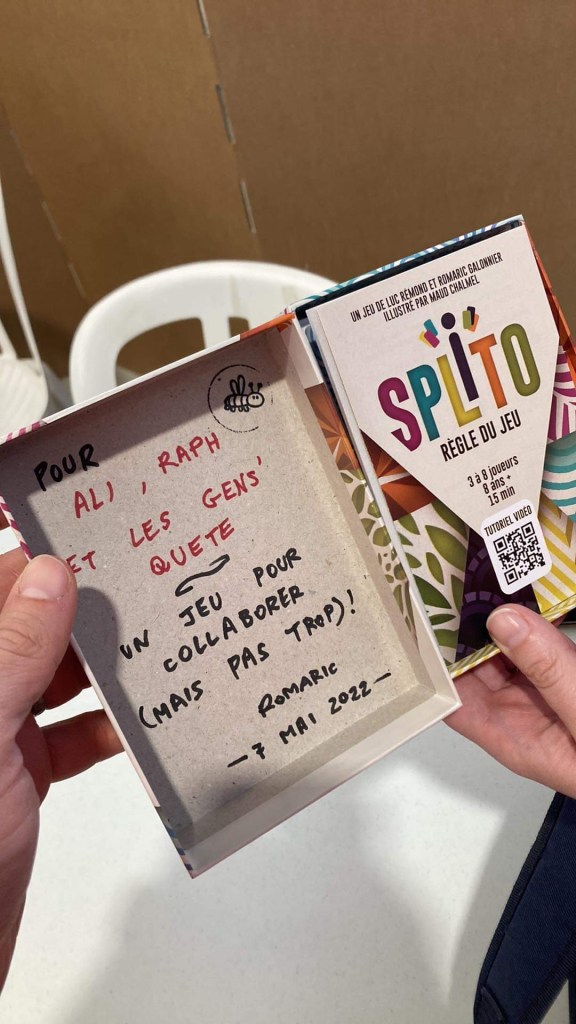 POUR
ALI, RAPH
ET LES GENS'
QUETE
UN JEU POUR
COLLABORER
(MAIS PAS TROP)!
ROMARIC
— 7 MAI 2022 —
UN JEU DE LUC RÉMOND ET ROMARIC GALONNIER
ILLUSTRÉ PAR MAUD CHALMEL
SPLITO
RÈGLE DU JEU
3 à 8 joueurs
8 ans +
15 min
TUTORIEL VIDÉO